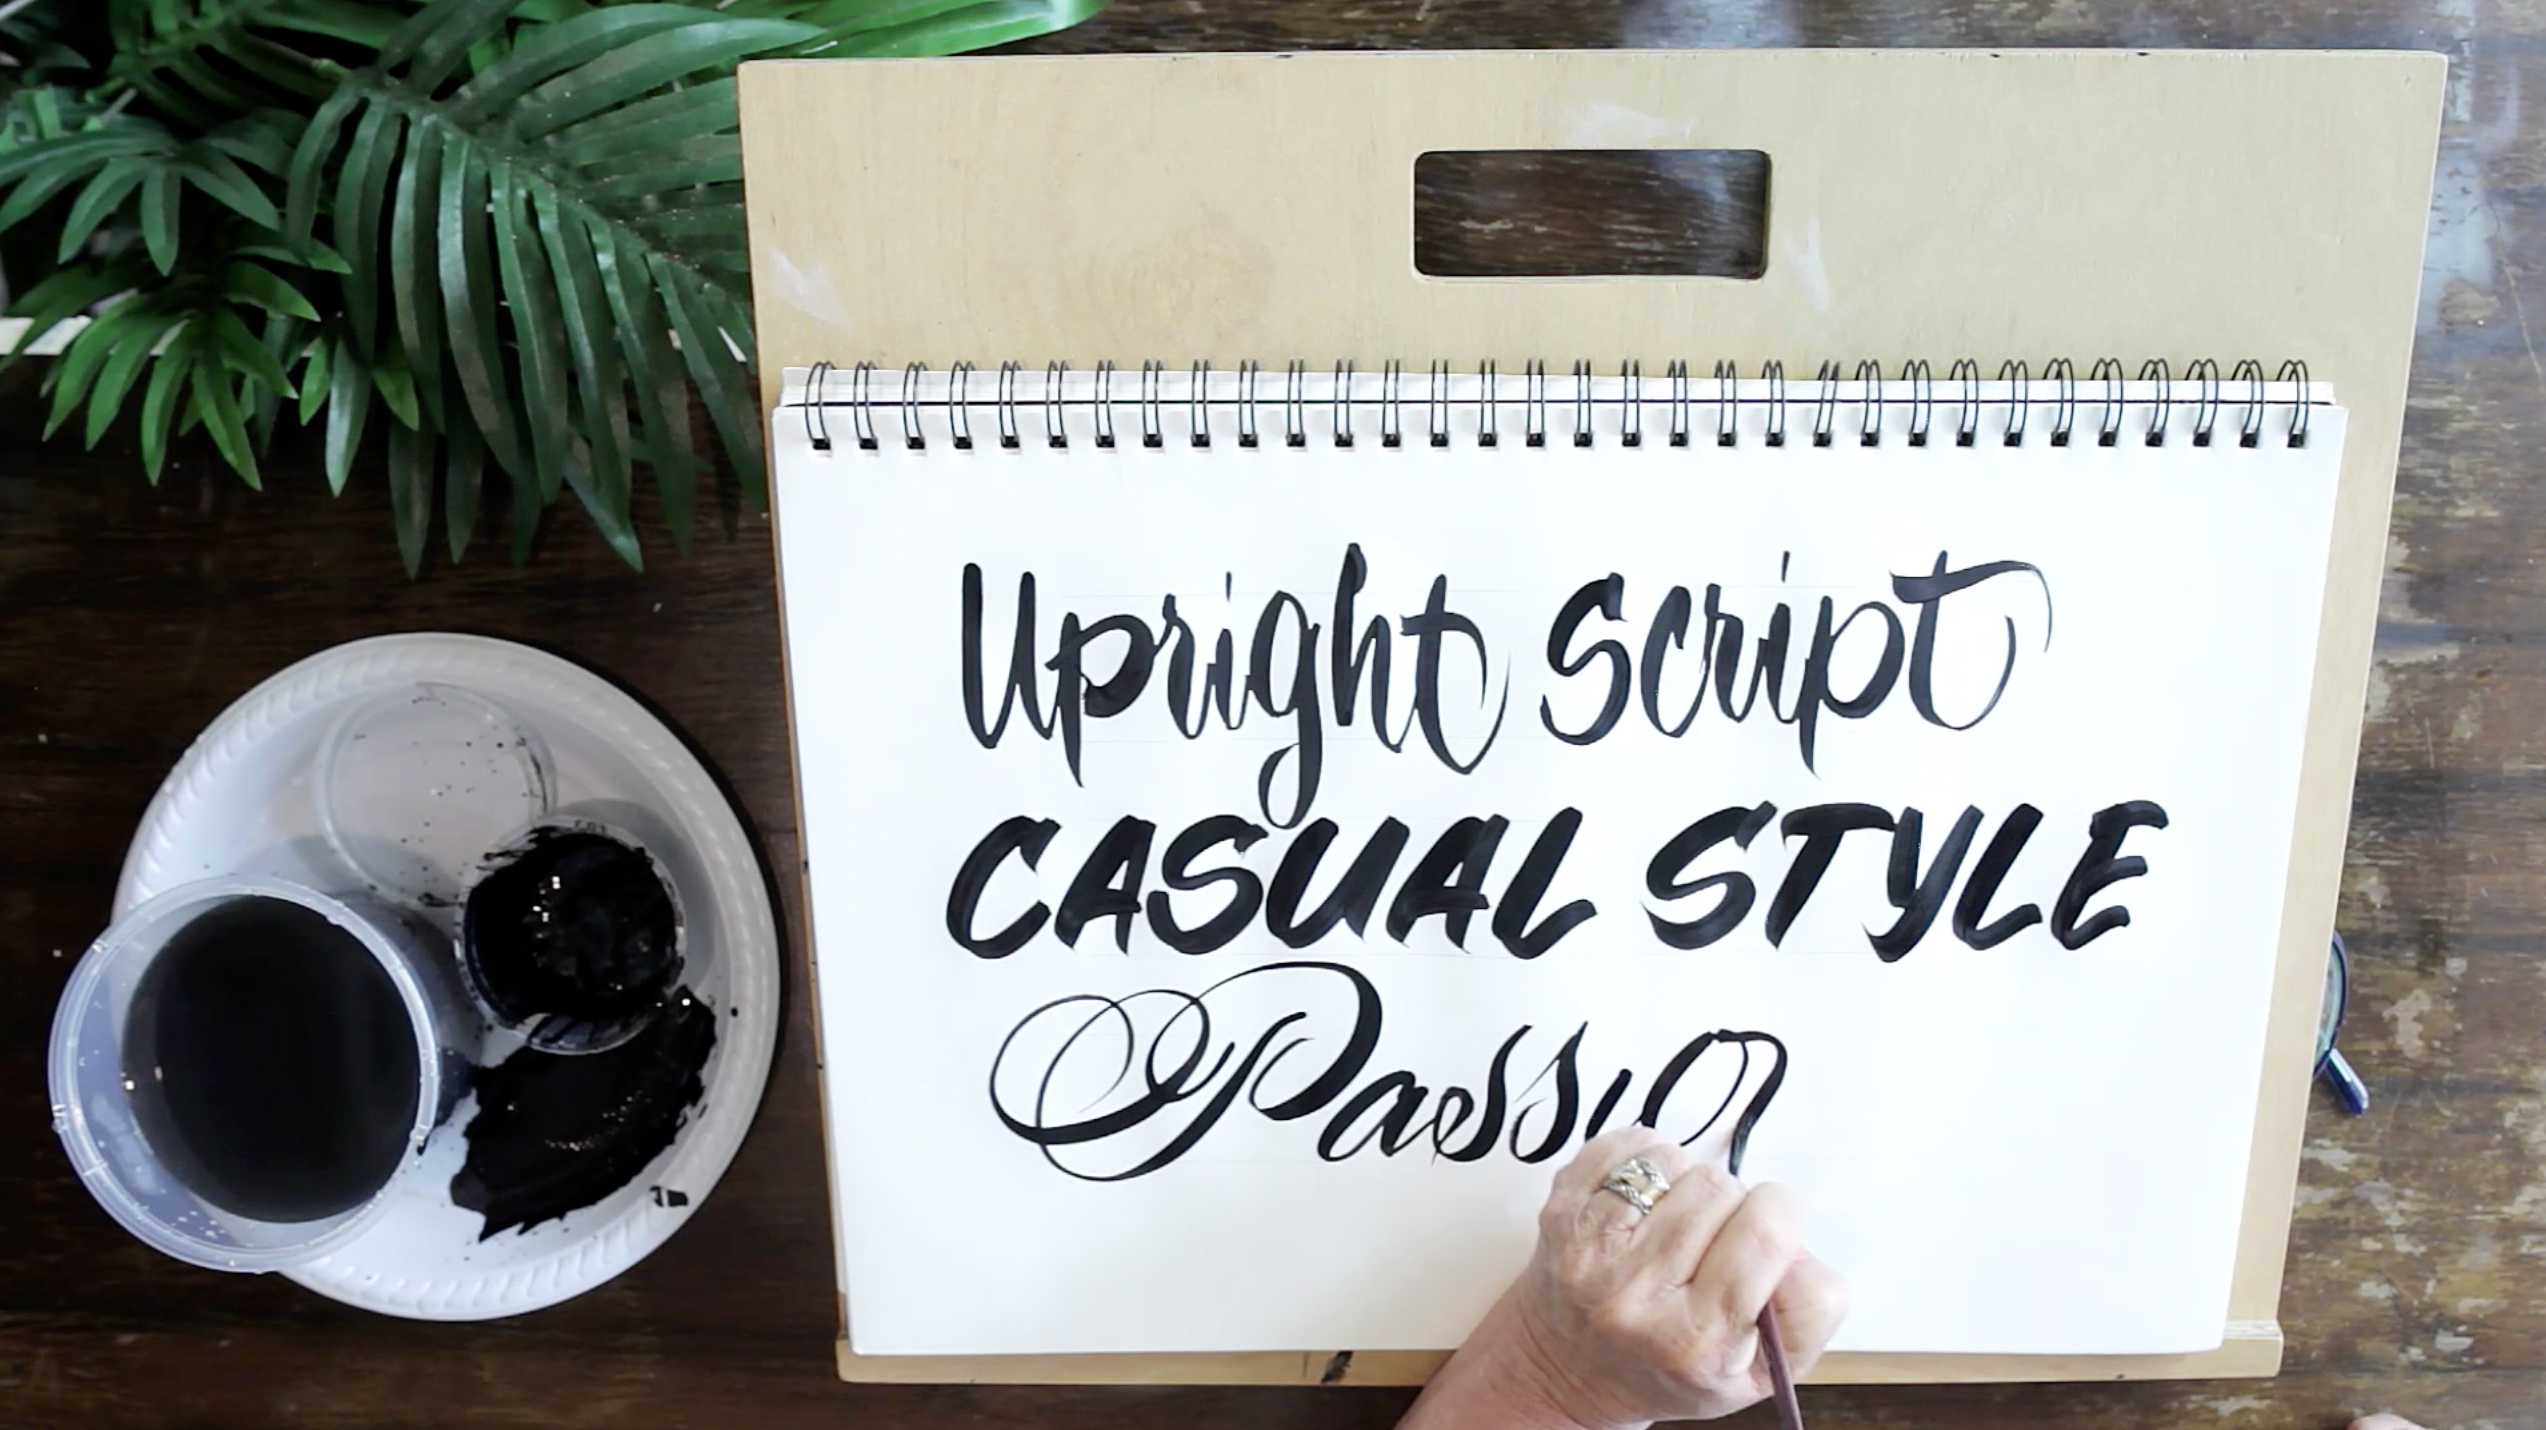 Upright Script
CASUAL STYLE
Passio